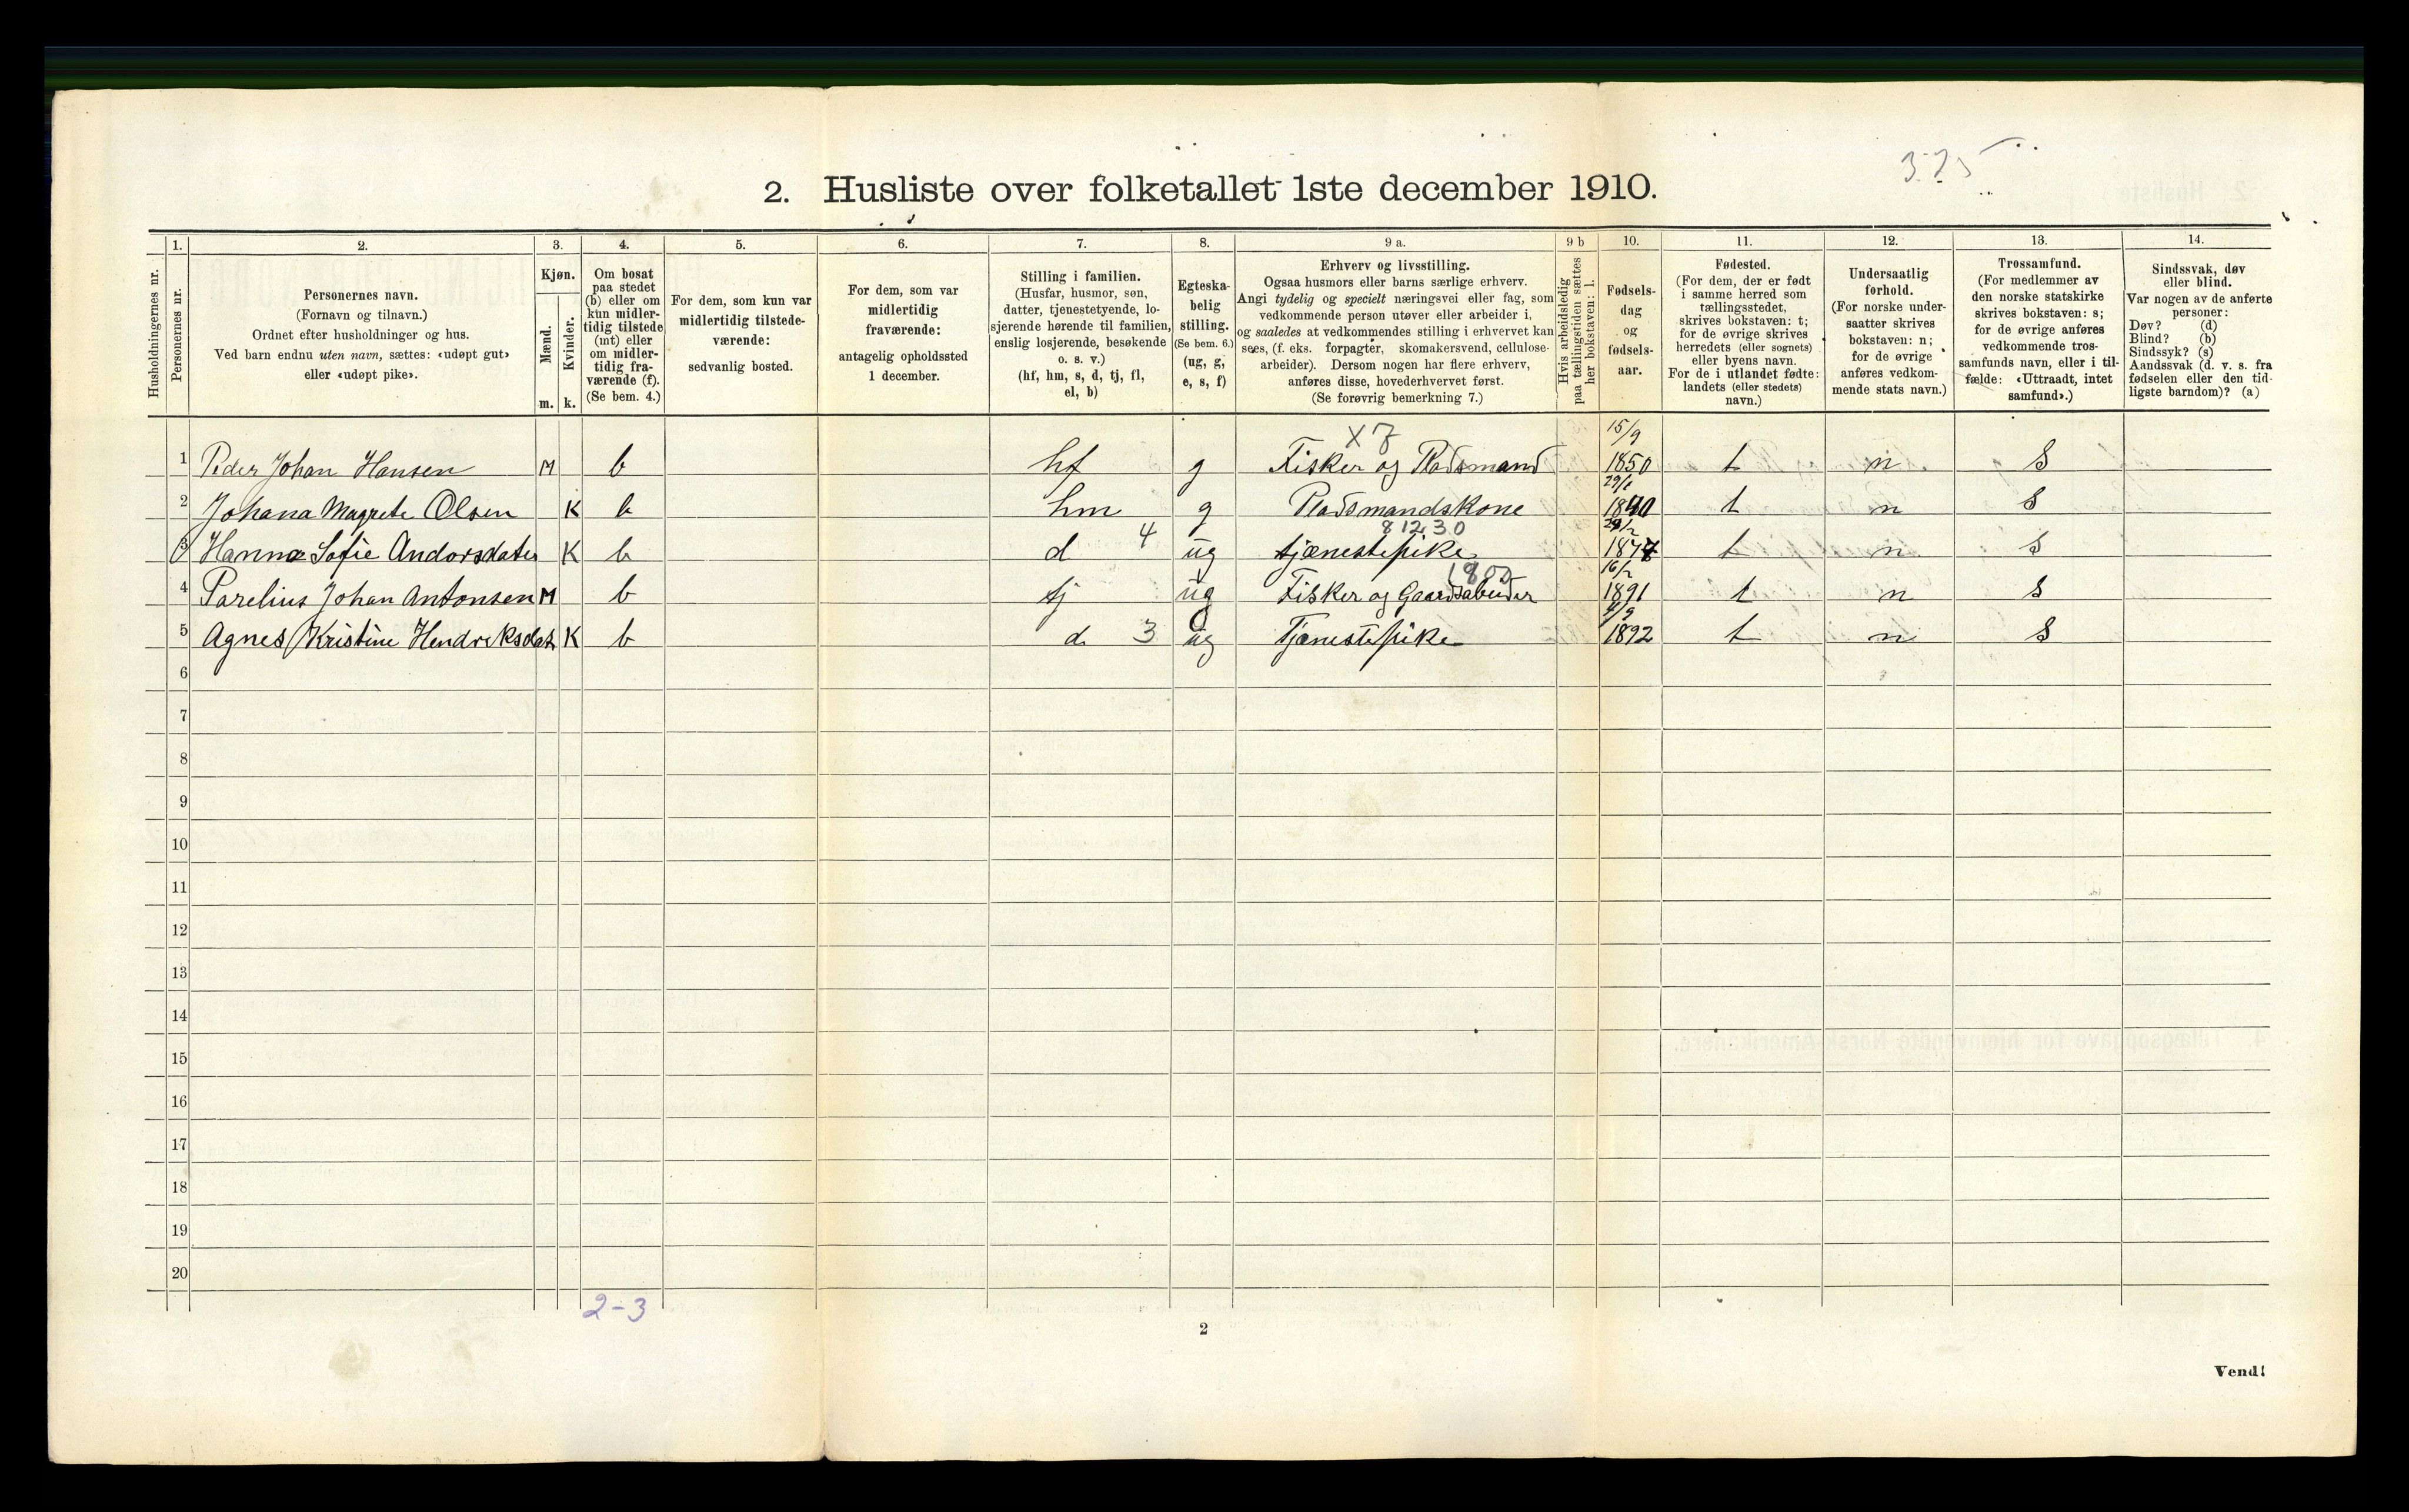 375
2. Husliste over folketallet 1ste december 1910.
Husholdningernes nr.
1.
Personernes nr.
2.
Personernes navn.
(Fornavn og tilnavn.)
Ordnet efter husholdninger og hus.
Ved barn endnu uten navn, sættes: «udøpt gut»
eller «udøpt pike».
3.
Kjøn.
Mænd.
Kvinder.
m. k.
4.
Om bosat
paa stedet
(b) eller om
kun midler-
tidig tilstede
(mt) eller
om midler-
tidig fra-
værende (f).
(Se bem. 4.)
5.
For dem, som kun var
midlertidig tilstede-
værende:
sedvanlig bosted.
6.
For dem, som var
midlertidig
fraværende:
antagelig opholdssted
1 december.
7.
Stilling i familien.
(Husfar, husmor, søn,
datter, tjenestetyende, lo-
sjerende hørende til familien,
enslig losjerende, besøkende
o. s. v.)
(hf, hm, s, d, tj, fl,
el, b)
8.
Egteska-
belig
stilling.
(Se bem. 6.)
(ug, g,
e, s, f)
9 a.
Erhverv og livsstilling.
Ogsaa husmors eller barns særlige erhverv.
Angi tydelig og specielt næringsvei eller fag, som
vedkommende person utøver eller arbeider i,
og saaledes at vedkommendes stilling i erhvervet kan
sees, (f. eks. forpagter, skomakersvend, cellulose-
arbeider). Dersom nogen har flere erhverv,
anføres disse, hovederhvervet først.
(Se forøvrig bemerkning 7.)
9 b
Hvis arbeidsledig
paa tællingstiden sættes
her bokstaven: l.
10.
Fødsels-
dag
og
fødsels-
aar.
11.
Fødested.
(For dem, der er født
i samme herred som
tællingsstedet,
skrives bokstaven: t;
for de øvrige skrives
herredets (eller sognets)
eller byens navn.
For de i utlandet fødte:
landets (eller stedets)
navn.)
12.
Undersaatlig
forhold.
(For norske under-
saatter skrives
bokstaven: n;
for de øvrige
anføres vedkom-
mende stats navn.)
13.
Trossamfund.
(For medlemmer av
den norske statskirke
skrives bokstaven: s;
for de øvrige anføres
vedkommende tros-
samfunds navn, eller i til-
fælde: «Uttraadt, intet
samfund».)
14.
Sindssvak, døv
eller blind.
Var nogen av de anførte
personer:
Døv? (d)
Blind? (b)
Sindssyk? (s)
Aandssvak (d. v. s. fra
fødselen eller den tid-
ligste barndom)? (a)
x 7 15/9
1 Peder Johan Hansen M b hf g Fisker og Pladsmand 1850 t n S
29/1
2 Johana Magrete Olsen K b hm g Pladsmandskone 1840 t n S
8 12 30
3 Hanna Sofie Andorsdater K b d 4 ug tjænestepike 1877 t n S
1800 16/2
4 Parelius Johan Antonsen M b tj ug Fisker og Gaardsabeider 1891 t n S
4/9
5 Agnes Kristine Hendreksdat K b d 3 ug Tjænestepike 1892 t n S
6
7
8
9
10
11
12
13
14
15
16
17
18
19
20
2-3
2
Vend!